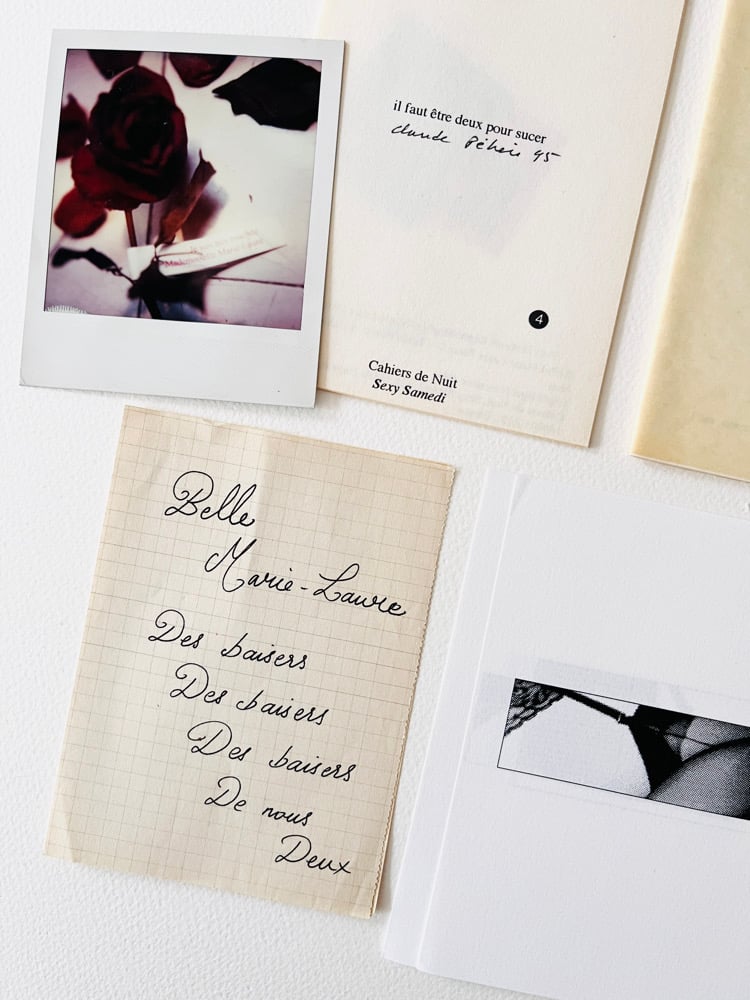 il faut être deux pour sucer
claude
95
4
Cahiers de Nuit
Sexy Samedi
Mademoiselle Marie-Laure
Belle
Marie-Laure
Des baisers
Des baisers
Des baisers
De nous
Deux